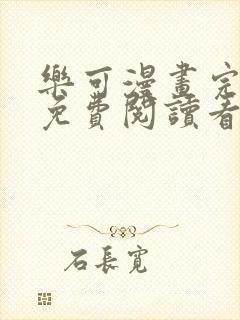 樂可漫畫完
免費閱讀看
石長寬